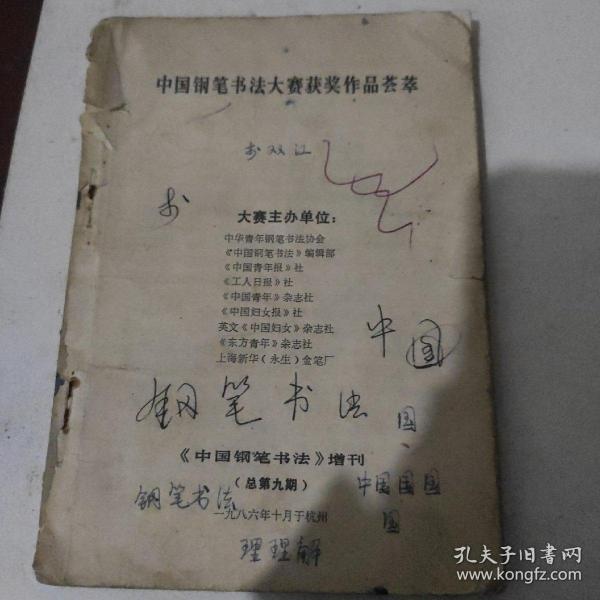 中国钢笔书法大赛获奖作品荟萃
双江
大赛主办单位：
中华青年钢笔书法协会
《中国钢笔书法》编辑部
《中国青年报》社
《工人日报》社
《中国青年》杂志社
《中国妇女报》社
英文《中国妇女》杂志社
《东方青年》杂志社
上海新华（永生）金笔厂
中国
钢笔书法
国
《中国钢笔书法》增刊
（总第九期）
钢笔书法
中国国国
一九八六年十月于杭州
国
理理解
孔夫子旧书网
www.kongfz.com